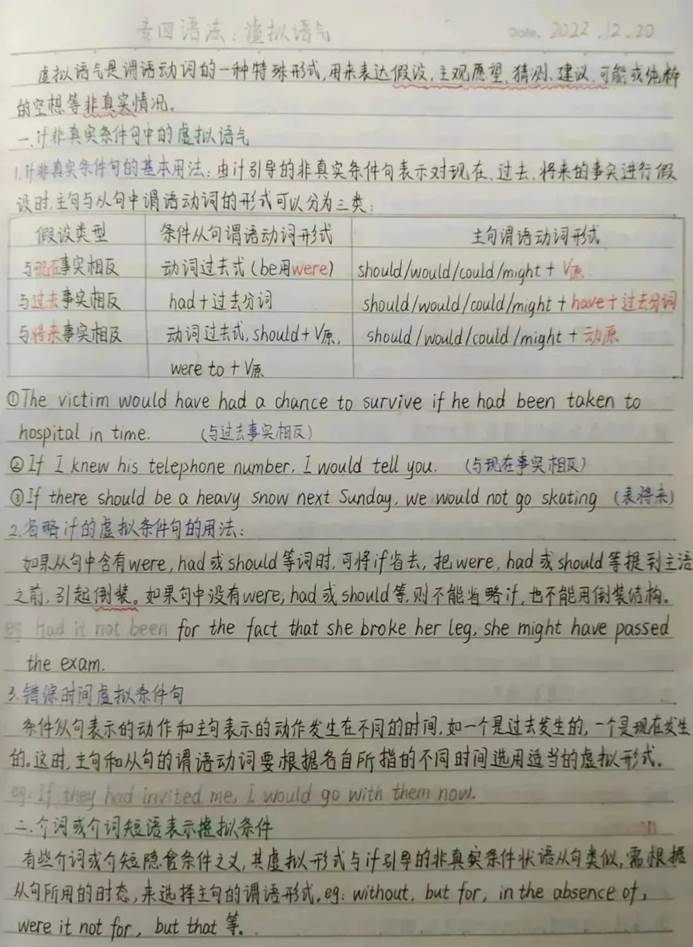 专四语法:虚拟语气 Date. 2022.12.20
虚拟语气是谓语动词的一种特殊形式,用来表达假设、主观愿望、猜测、建议、可能或纯粹
的空想等非真实情况。
一、if非真实条件句中的虚拟语气
1.if非真实条件句的基本用法:由if引导的非真实条件句表示对现在、过去、将来的事实进行假
设时,主句与从句中谓语动词的形式可以分为三类:
假设类型 条件从句谓语动词形式 主句谓语动词形式
与现在事实相反 动词过去式(be用were) should/would/could/might + V原
与过去事实相反 had+过去分词 should/would/could/might + have+过去分词
与将来事实相反 动词过去式, should+V原, should/would/could/might + 动原
were to + V原
①The victim would have had a chance to survive if he had been taken to
hospital in time. (与过去事实相反)
②If I knew his telephone number, I would tell you. (与现在事实相反)
③If there should be a heavy snow next Sunday, we would not go skating (表将来)
2.省略if的虚拟条件句的用法:
如果从句中含有were, had或should等词时,可将if省去,把were, had或should等提到主语
之前,引起倒装。如果句中没有were, had或should等,则不能省略if,也不能用倒装结构。
eg Had it not been for the fact that she broke her leg, she might have passed
the exam.
3.错综时间虚拟条件句
条件从句表示的动作和主句表示的动作发生在不同的时间,如一个是过去发生的,一个是现在发生
的,这时,主句和从句的谓语动词要根据各自所指的不同时间选用适当的虚拟形式。
eg: If they had invited me, I would go with them now.
二、介词或介词短语表示虚拟条件
有些介词或介短隐含条件之义,其虚拟形式与if引导的非真实条件状语从句类似,需根据
从句所用的时态,来选择主句的谓语形式,eg: without, but for, in the absence of,
were it not for, but that 等。